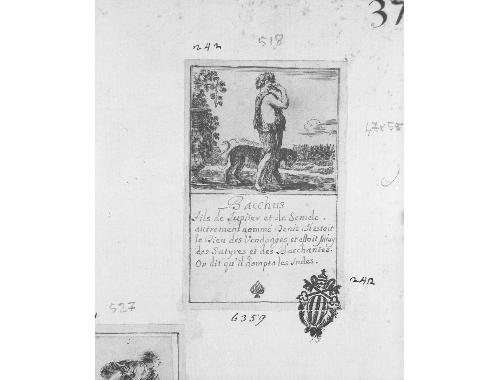 37
242
518
47x55
Bacchus
fils de Jupiter et de Semele.
autrement nommé Denis. Il estoit
le Dieu des Vendanges, et estoit suivy
des Satyres et des Bacchantes.
On dit qu'il dompta les Indes.
242
6359
527